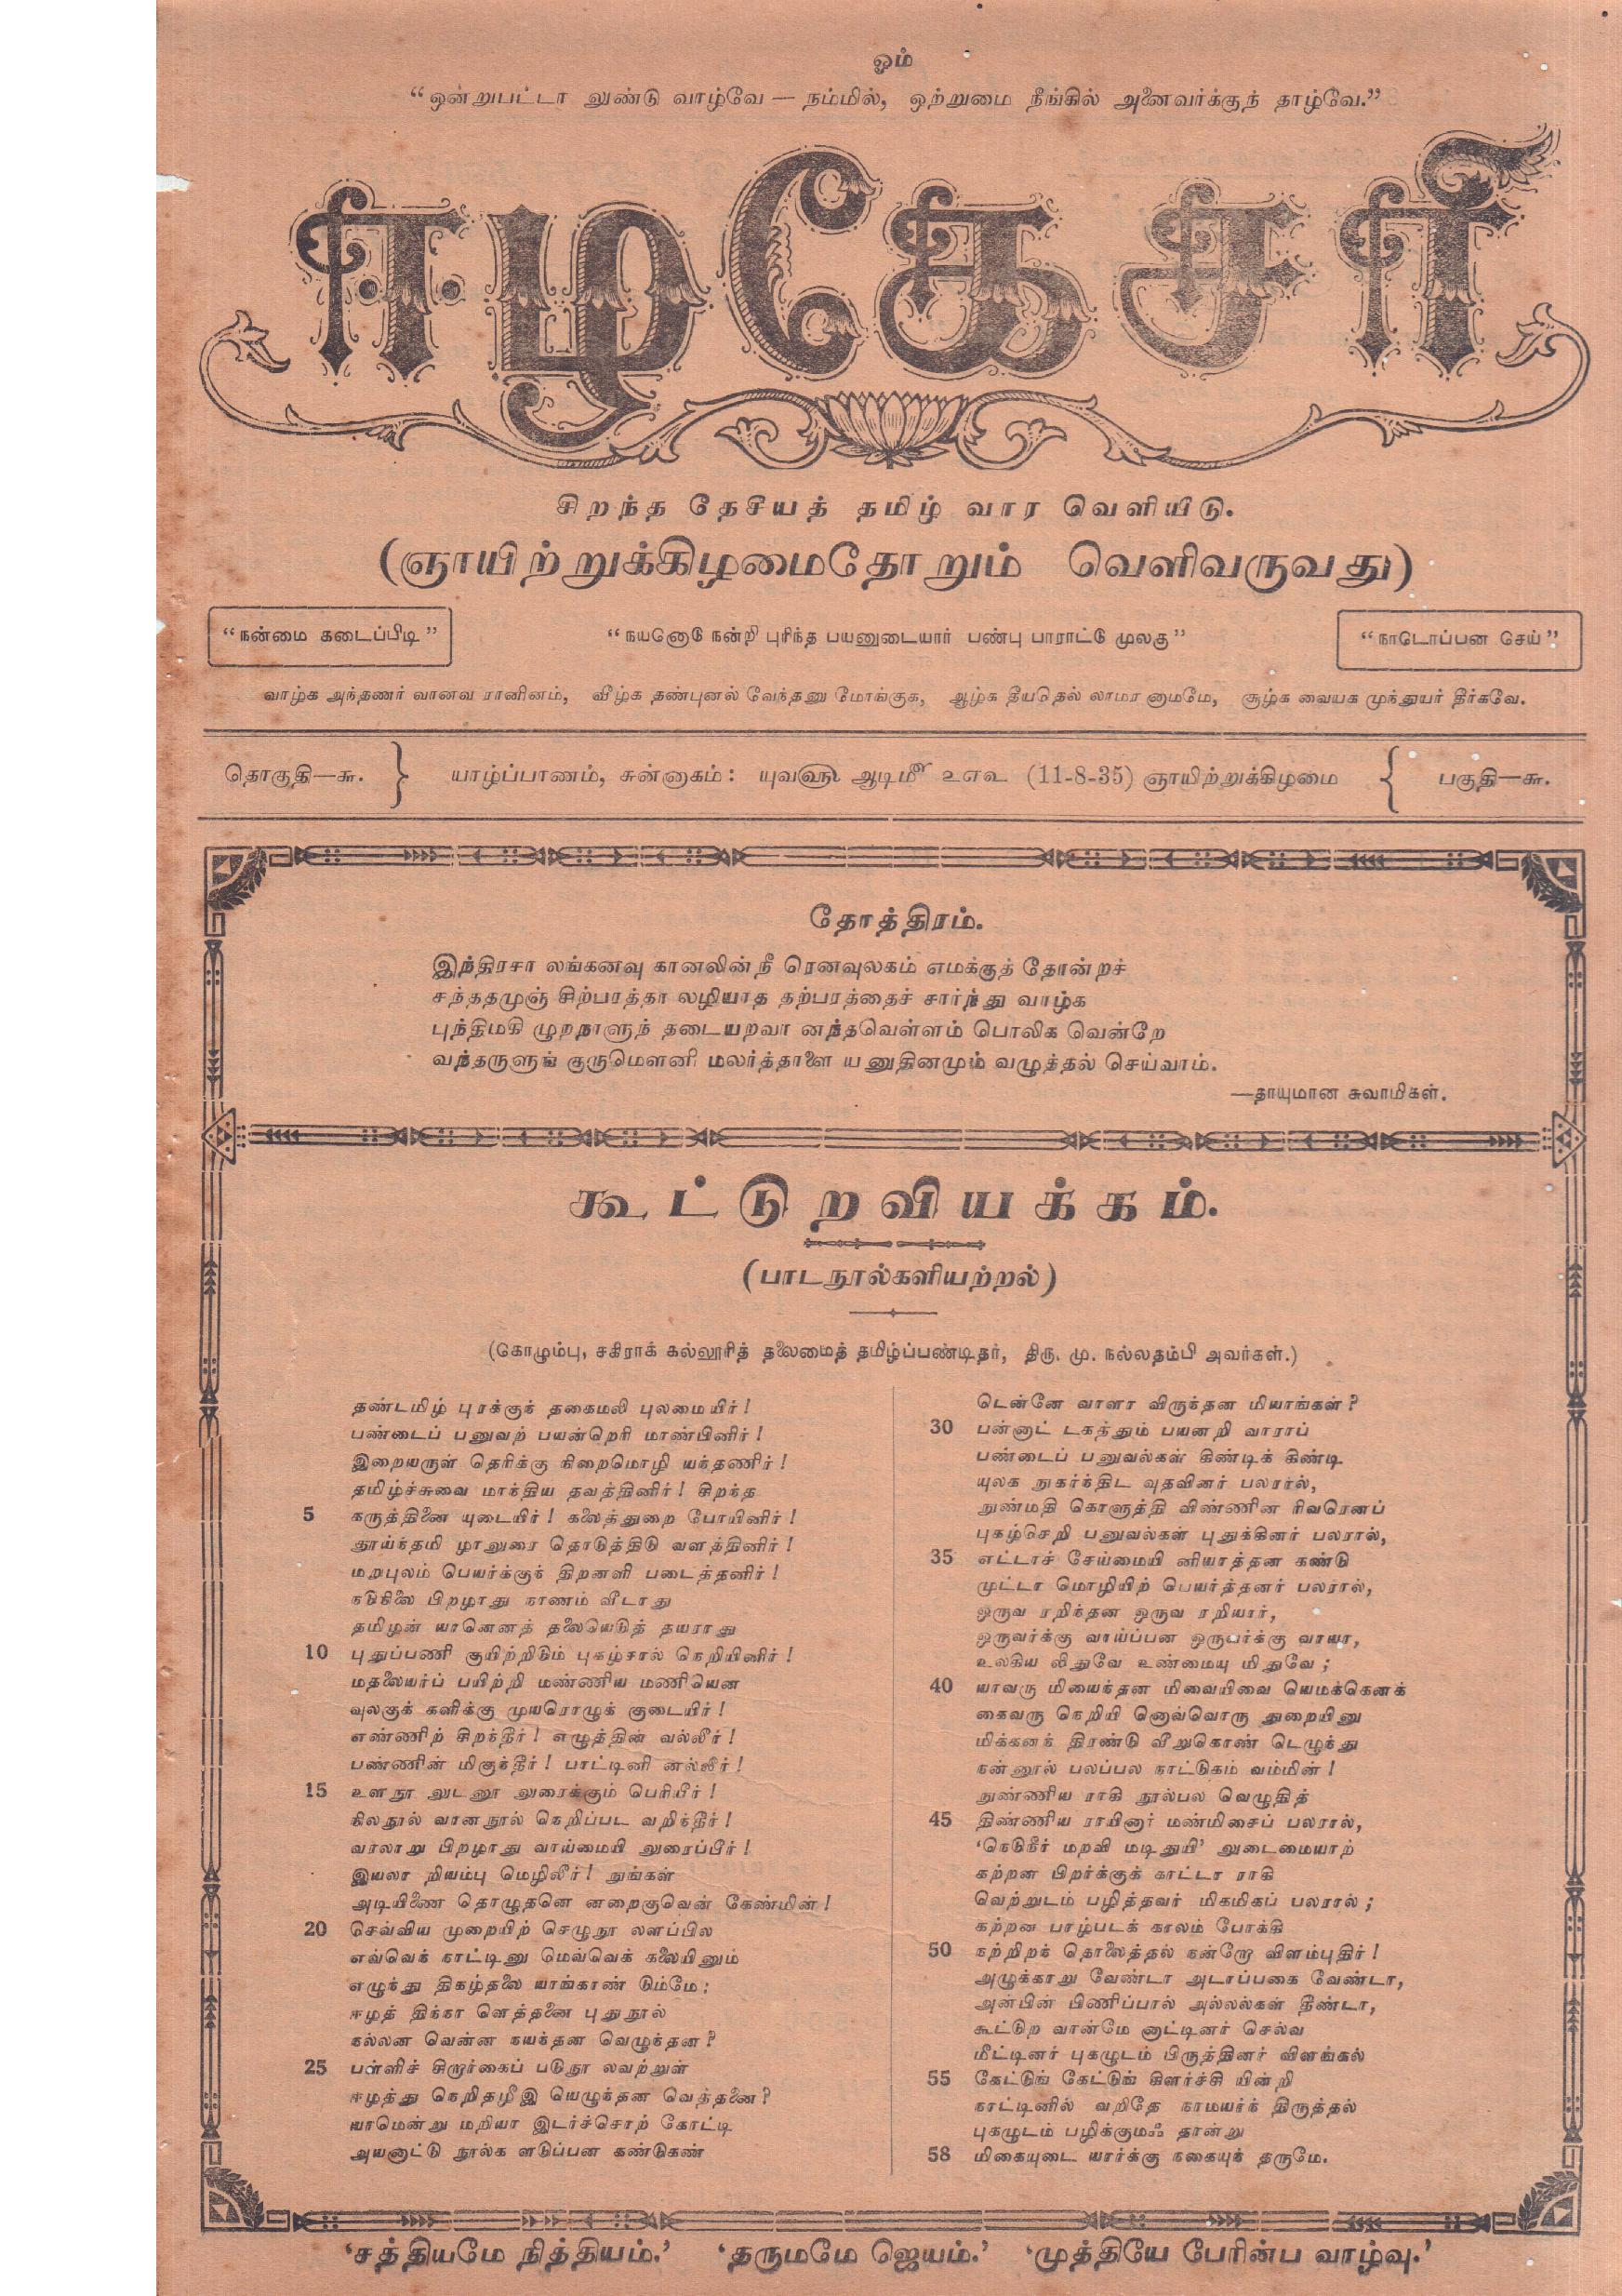 ஓம்
“ஒன்றுபட்டா லுண்டு வாழ்வே — நம்மில், ஒற்றுமை நீங்கில் அனைவர்க்குந் தாழ்வே.”
ஈழகேசரி
சிறந்த தேசியத் தமிழ் வார வெளியீடு.
(ஞாயிற்றுக்கிழமைதோறும் வெளிவருவது)
“நன்மை கடைப்பிடி”
“நயனொடு நன்றி புரிந்த பயனுடையார் பண்பு பாராட்டு முலகு”
“நாடொப்பன செய்”
வாழ்க அந்தணர் வானவ ரானினம், வீழ்க தண்புனல் வேந்தனு மோங்குக, ஆழ்க தீயதெல் லாமர னாமமே, சூழ்க வையக முந்துயர் தீர்கவே.
தொகுதி—௬. } யாழ்ப்பாணம், சுன்னாகம்: யுவ௵ ஆடி௴ ௨௭௳ (11-8-35) ஞாயிற்றுக்கிழமை { பகுதி—௬.
தோத்திரம்.
இந்திரசா லங்கனவு கானலின்நீ ரெனவுலகம் எமக்குத் தோன்றச்
சந்ததமுஞ் சிற்பரத்தா லழியாத தற்பரத்தைச் சார்ந்து வாழ்க
புந்திமகி ழுறநாளுந் தடையறவா னந்தவெள்ளம் பொலிக வென்றே
வந்தருளுங் குருமௌனி மலர்த்தாளை யனுதினமும் வழுத்தல் செய்வாம்.
—தாயுமான சுவாமிகள்.
கூட்டுறவியக்கம்.
(பாடநூல்களியற்றல்)
(கொழும்பு, சகிராக் கல்லூரித் தலைமைத் தமிழ்ப்பண்டிதர், திரு. மு. நல்லதம்பி அவர்கள்.)
தண்டமிழ் புரக்குந் தகைமலி புலமையிர்!
பண்டைப் பனுவற் பயன்றெரி மாண்பினிர்!
இறையருள் தெரிக்கு நிறைமொழி யந்தணிர்!
தமிழ்ச்சுவை மாந்திய தவத்தினிர்! சிறந்த
5 கருத்திணை யுடையிர்! கலைத்துறை போயினிர்!
தூய்ந்தமி ழானுரை தொடுத்திடு வளத்தினிர்!
மறபுலம் பெயர்க்குந் திறனளி படைத்தனிர்!
நடுநிலை பிறழாது நாணம் வீடாது
தமிழன் யானெனத் தலையெடுத் தயராது
10 புதுப்பணி குயிற்றிடும் புகழ்சால் நெறியினிர்!
மதலையர்ப் பயிற்றி மண்ணிய மணியென
வுலகுக் களிக்கு முயரொழுக் குடையிர்!
எண்ணிற் சிறந்தீர்! எழுத்தின் வல்லீர்!
பண்ணின் மிகுந்தீர்! பாட்டினி னல்லீர்!
15 உளநூ லுடனூ லுரைக்கும் பெரியீர்!
நிலநூல் வானநூல் நெறிப்பட வறிந்தீர்!
வரலாறு பிறழாது வாய்மையி லுரைப்பீர்!
இயலா றியம்பு மெழிலீர்! நுங்கள்
அடியிணை தொழுதனெ னறைகுவென் கேண்மின்!
20 செவ்விய முறையிற் செழுநூ லளப்பில
எவ்வெந் நாட்டினு மெவ்வெக் கலையினும்
எழுந்து திகழ்தலை யாங்காண் டும்மே;
ஈழத் திக்கா லெத்தனை புதுநூல்
நல்லன வென்ன நயந்தன வெழுந்தன?
25 பள்ளிச் சிறார்கைப் படுநூ லவற்றுள்
ஈழத்து நெறிதழீஇ யெழுந்தன வெத்தனை?
யாமென்று மறியா இடர்ச்சொற் கோட்டி
அயனாட்டு நூல்க ளடுப்பன கண்டுகண்
டென்னே வாளா விருந்தன மியாங்கள்?
30 பன்னாட் டகத்தும் பயனறி வாராப்
பண்டைப் பனுவல்கள் கிண்டிக் கிண்டி
யுலக நுகர்ந்திட வுதவினர் பலரால்,
நுண்மதி கொளுத்தி விண்ணின ரிவரெனப்
புகழ்செறி பனுவல்கள் புதுக்கினர் பலரால்,
35 எட்டாச் சேய்மையி னியாத்தன கண்டு
முட்டா மொழியிற் பெயர்த்தனர் பலரால்,
ஒருவ ரறிந்தன ஒருவ ரறியார்,
ஒருவர்க்கு வாய்ப்பன ஒருவர்க்கு வாயா,
உலகிய லிதுவே உண்மையு மிதுவே;
40 யாவரு மியைந்தன மிவையிவை யெமக்கெனக்
கைவரு நெறியி னொவ்வொரு துறையினு
மிக்கனந் திரண்டு வீறுகொண் டெழுந்து
நன்னூல் பலப்பல நாட்டுகம் வம்மின்!
நுண்ணிய ராகி நூல்பல வெழுதித்
45 திண்ணிய ராயினார் மண்மிசைப் பலரால்,
‘நெடுநீர் மறவி மடிதுயி’ லுடைமையாற்
கற்றன பிறர்க்குக் காட்டா ராகி
வெற்றுடம் பழித்தவர் மிகமிகப் பலரால்;
கற்றன பாழ்படக் காலம் போக்கி
50 நற்றிறந் தொலைத்தல் நன்றோ விளம்புதிர்!
அழுக்காறு வேண்டா அடாப்பகை வேண்டா,
அன்பின் பிணிப்பால் அல்லல்கள் தீண்டா,
கூட்டுற வான்மே னாட்டினர் செல்வ
மீட்டினர் புகழுடம் பிருத்தினர் விளங்கல்
55 கேட்டுங் கேட்டுங் கிளர்ச்சி யின்றி
நாட்டினில் வறிதே நாமயர்ந் திருத்தல்
புகழுடம் பழிக்குமஃ தான்று
58 மிகையுடை யார்க்கு நகையுந் தருமே.
‘சத்தியமே நித்தியம்.’ ‘தருமமே ஜெயம்.’ ‘முத்தியே பேரின்ப வாழ்வு.’